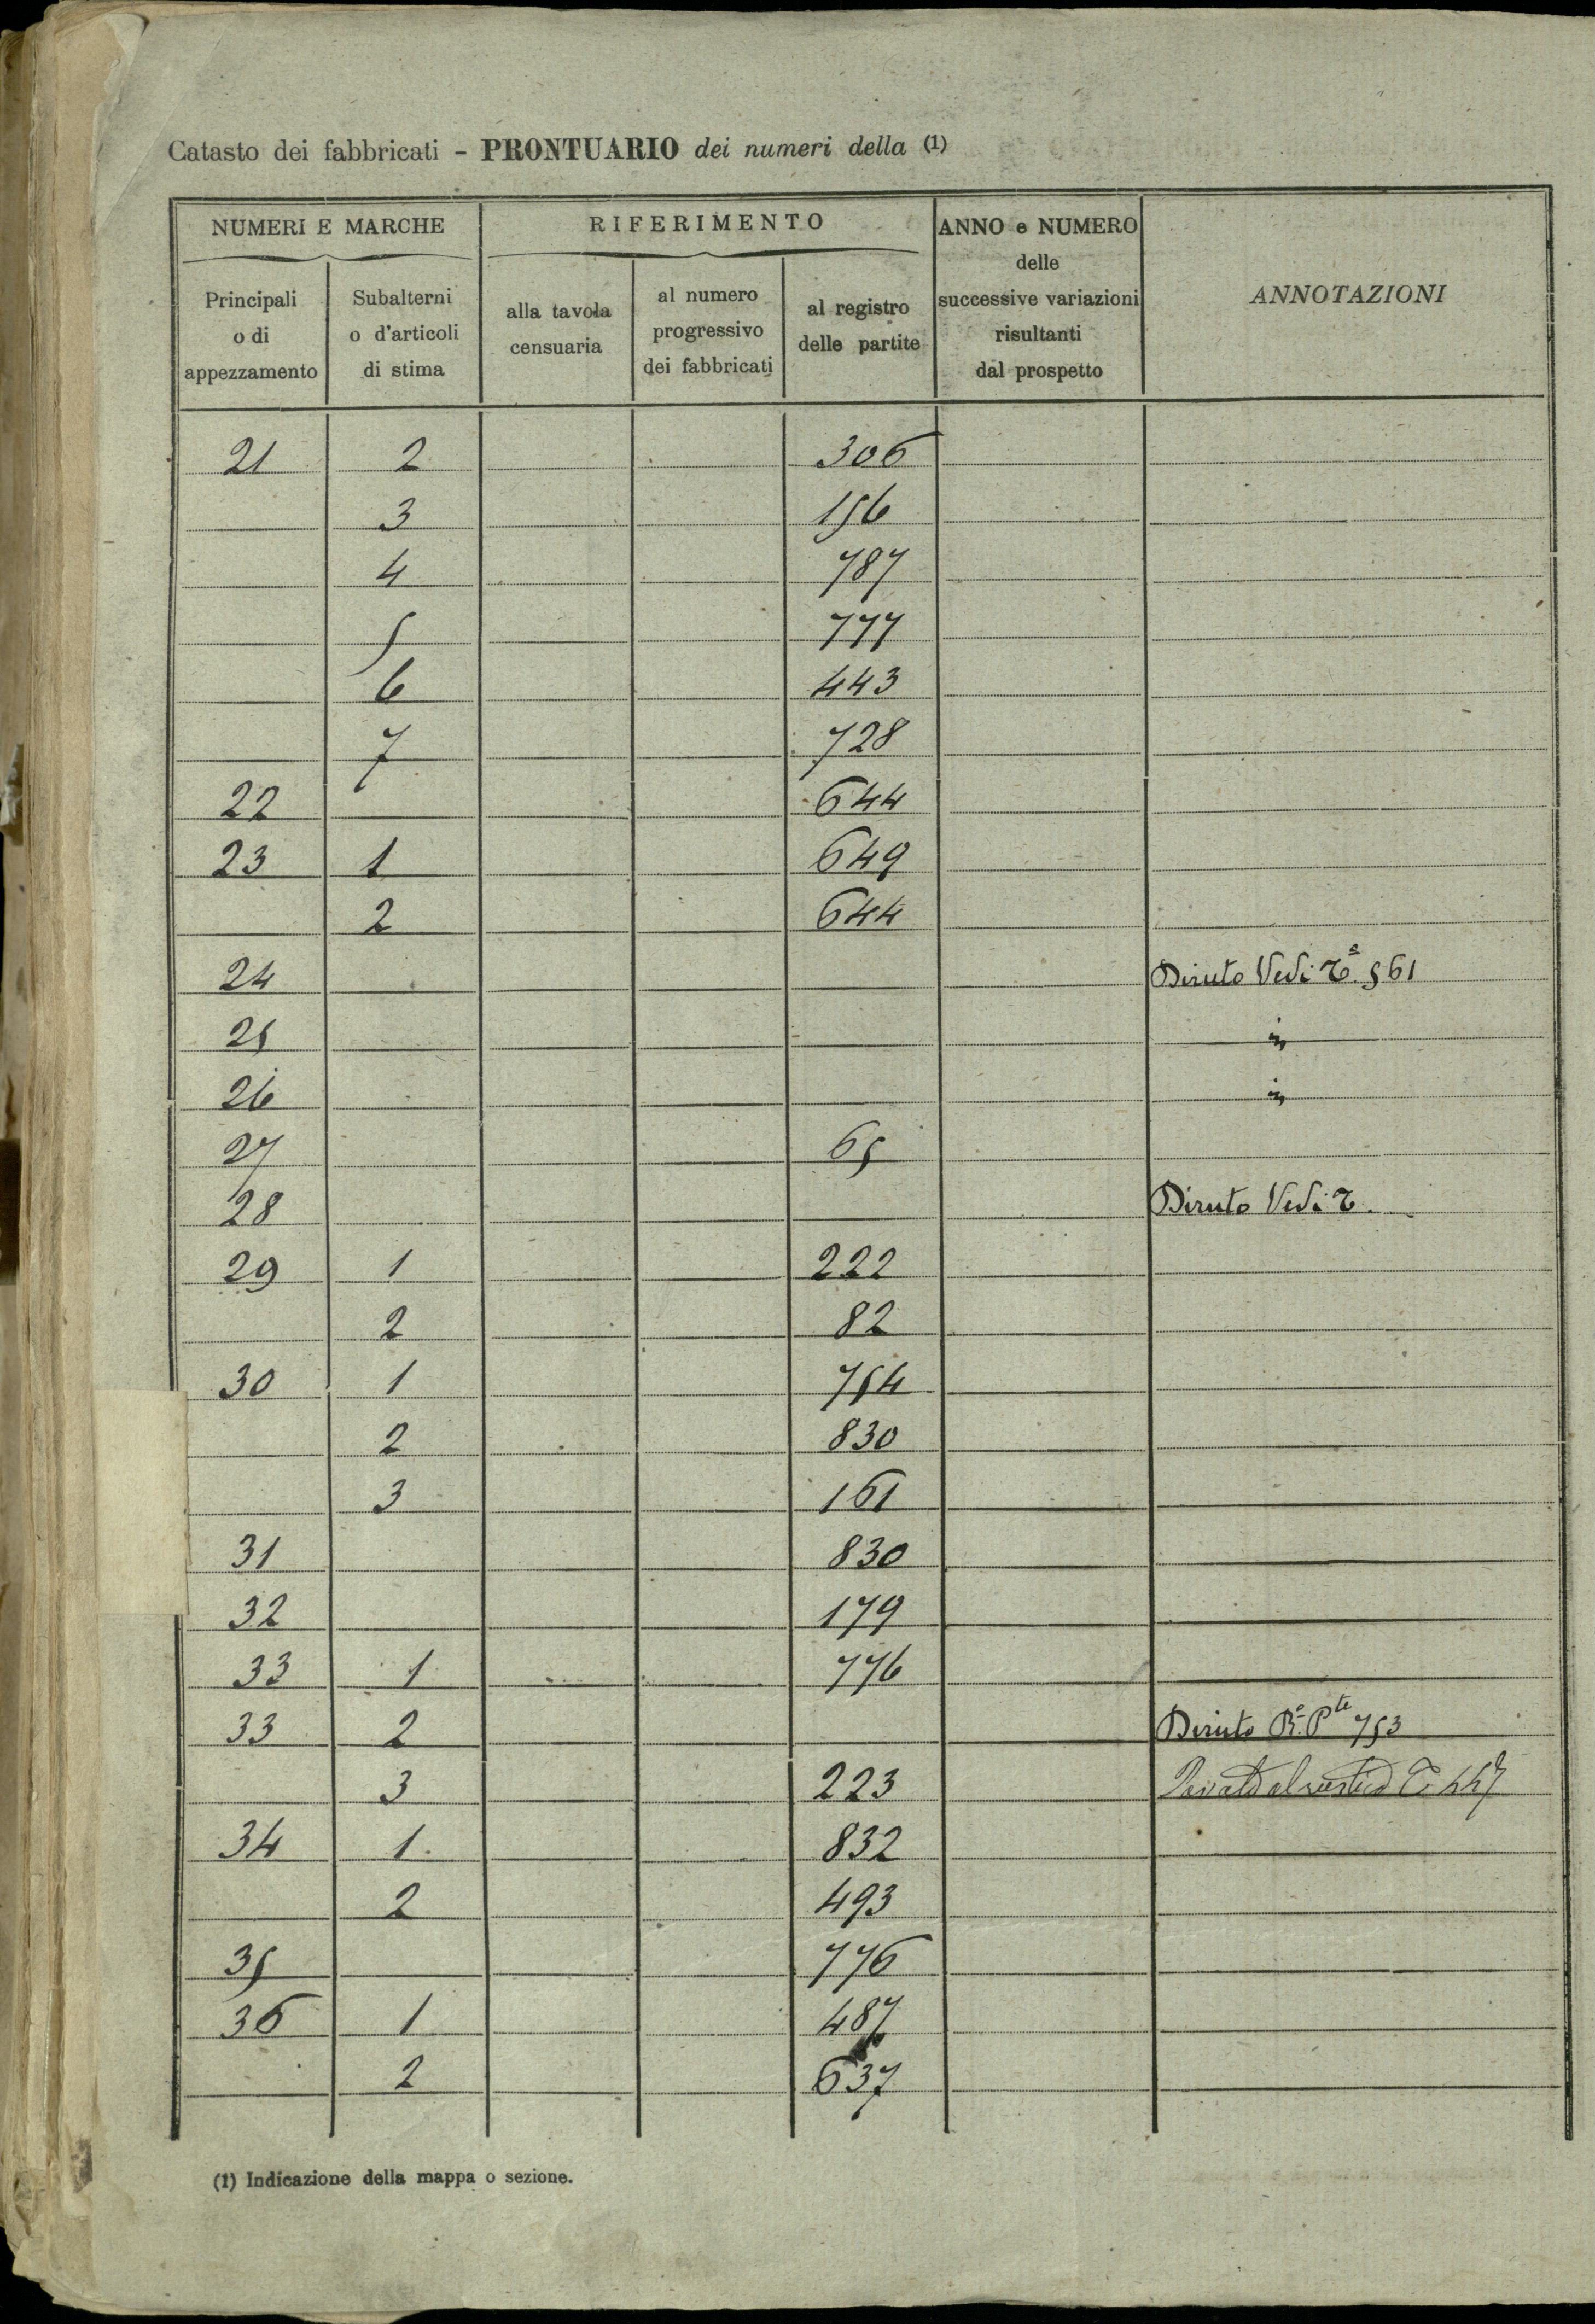 Catasto dei fabbricati - PRONTUARIO dei numeri della (1)
NUMERI E MARCHE
RIFERIMENTO
ANNO e NUMERO
delle
successive variazioni
risultanti
dal prospetto
ANNOTAZIONI
Principali
o di
appezzamento
Subalterni
o d'articoli
di stima
alla tavola
censuaria
al numero
progressivo
dei fabbricati
al registro
delle partite
21 2 306
3 156
4 787
5 777
6 443
7 728
22 644
23 1 649
2 644
24 Diruto Vedi 561
25
26
27 65
28 Diruto Vedi
29 1 222
2 82
30 1 754
2 830
3 161
31 830
32 179
33 1 776
33 2 Diruto R.° P.te 753
3 223 al
34 1 832
2 493
35 776
36 1 487
2 637
(1) Indicazione della mappa o sezione.